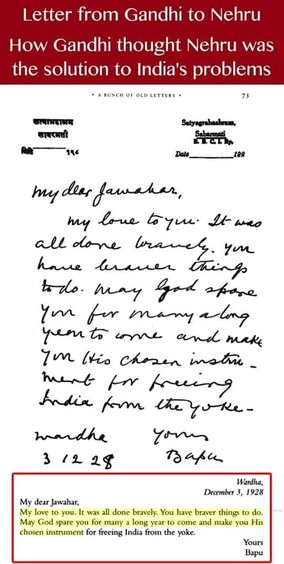 Letter from Gandhi to Nehru
How Gandhi thought Nehru was
the solution to India's problems
• A BUNCH OF OLD LETTERS •
73
सत्याग्रहाश्रम
साबरमती
मिति 198
Satyagrahashram,
Sabarmati
B. B. C. I. Ry.
Date 192
My dear Jawahar,
My love to you. It was
all done bravely. You
have braver things
to do. May God spare
you for many a long
year to come and make
you His chosen instru-
ment for freeing
India from the yoke-
Wardha Yours
3 12 28 Bapu
Wardha,
December 3, 1928
My dear Jawahar,
My love to you. It was all done bravely. You have braver things to do.
May God spare you for many a long year to come and make you His
chosen instrument for freeing India from the yoke.
Yours
Bapu